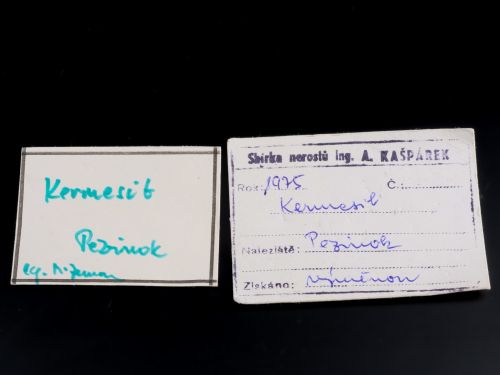 Kermesit
Pezinok
leg. M. Zeman
Sbírka nerostů ing. A. KAŠPÁREK
Rok: 1975 Č.:
Kermesit
Naleziště: Pezinok
Získáno: výměnou